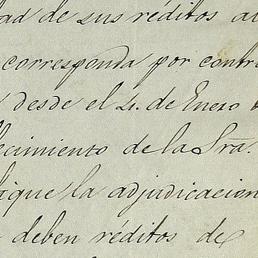 dad de sus réditos a
corresponda por contr
desde el 21. de Enero
ecimiento de la Sra.
ique la adjudicacion
deben réditos de